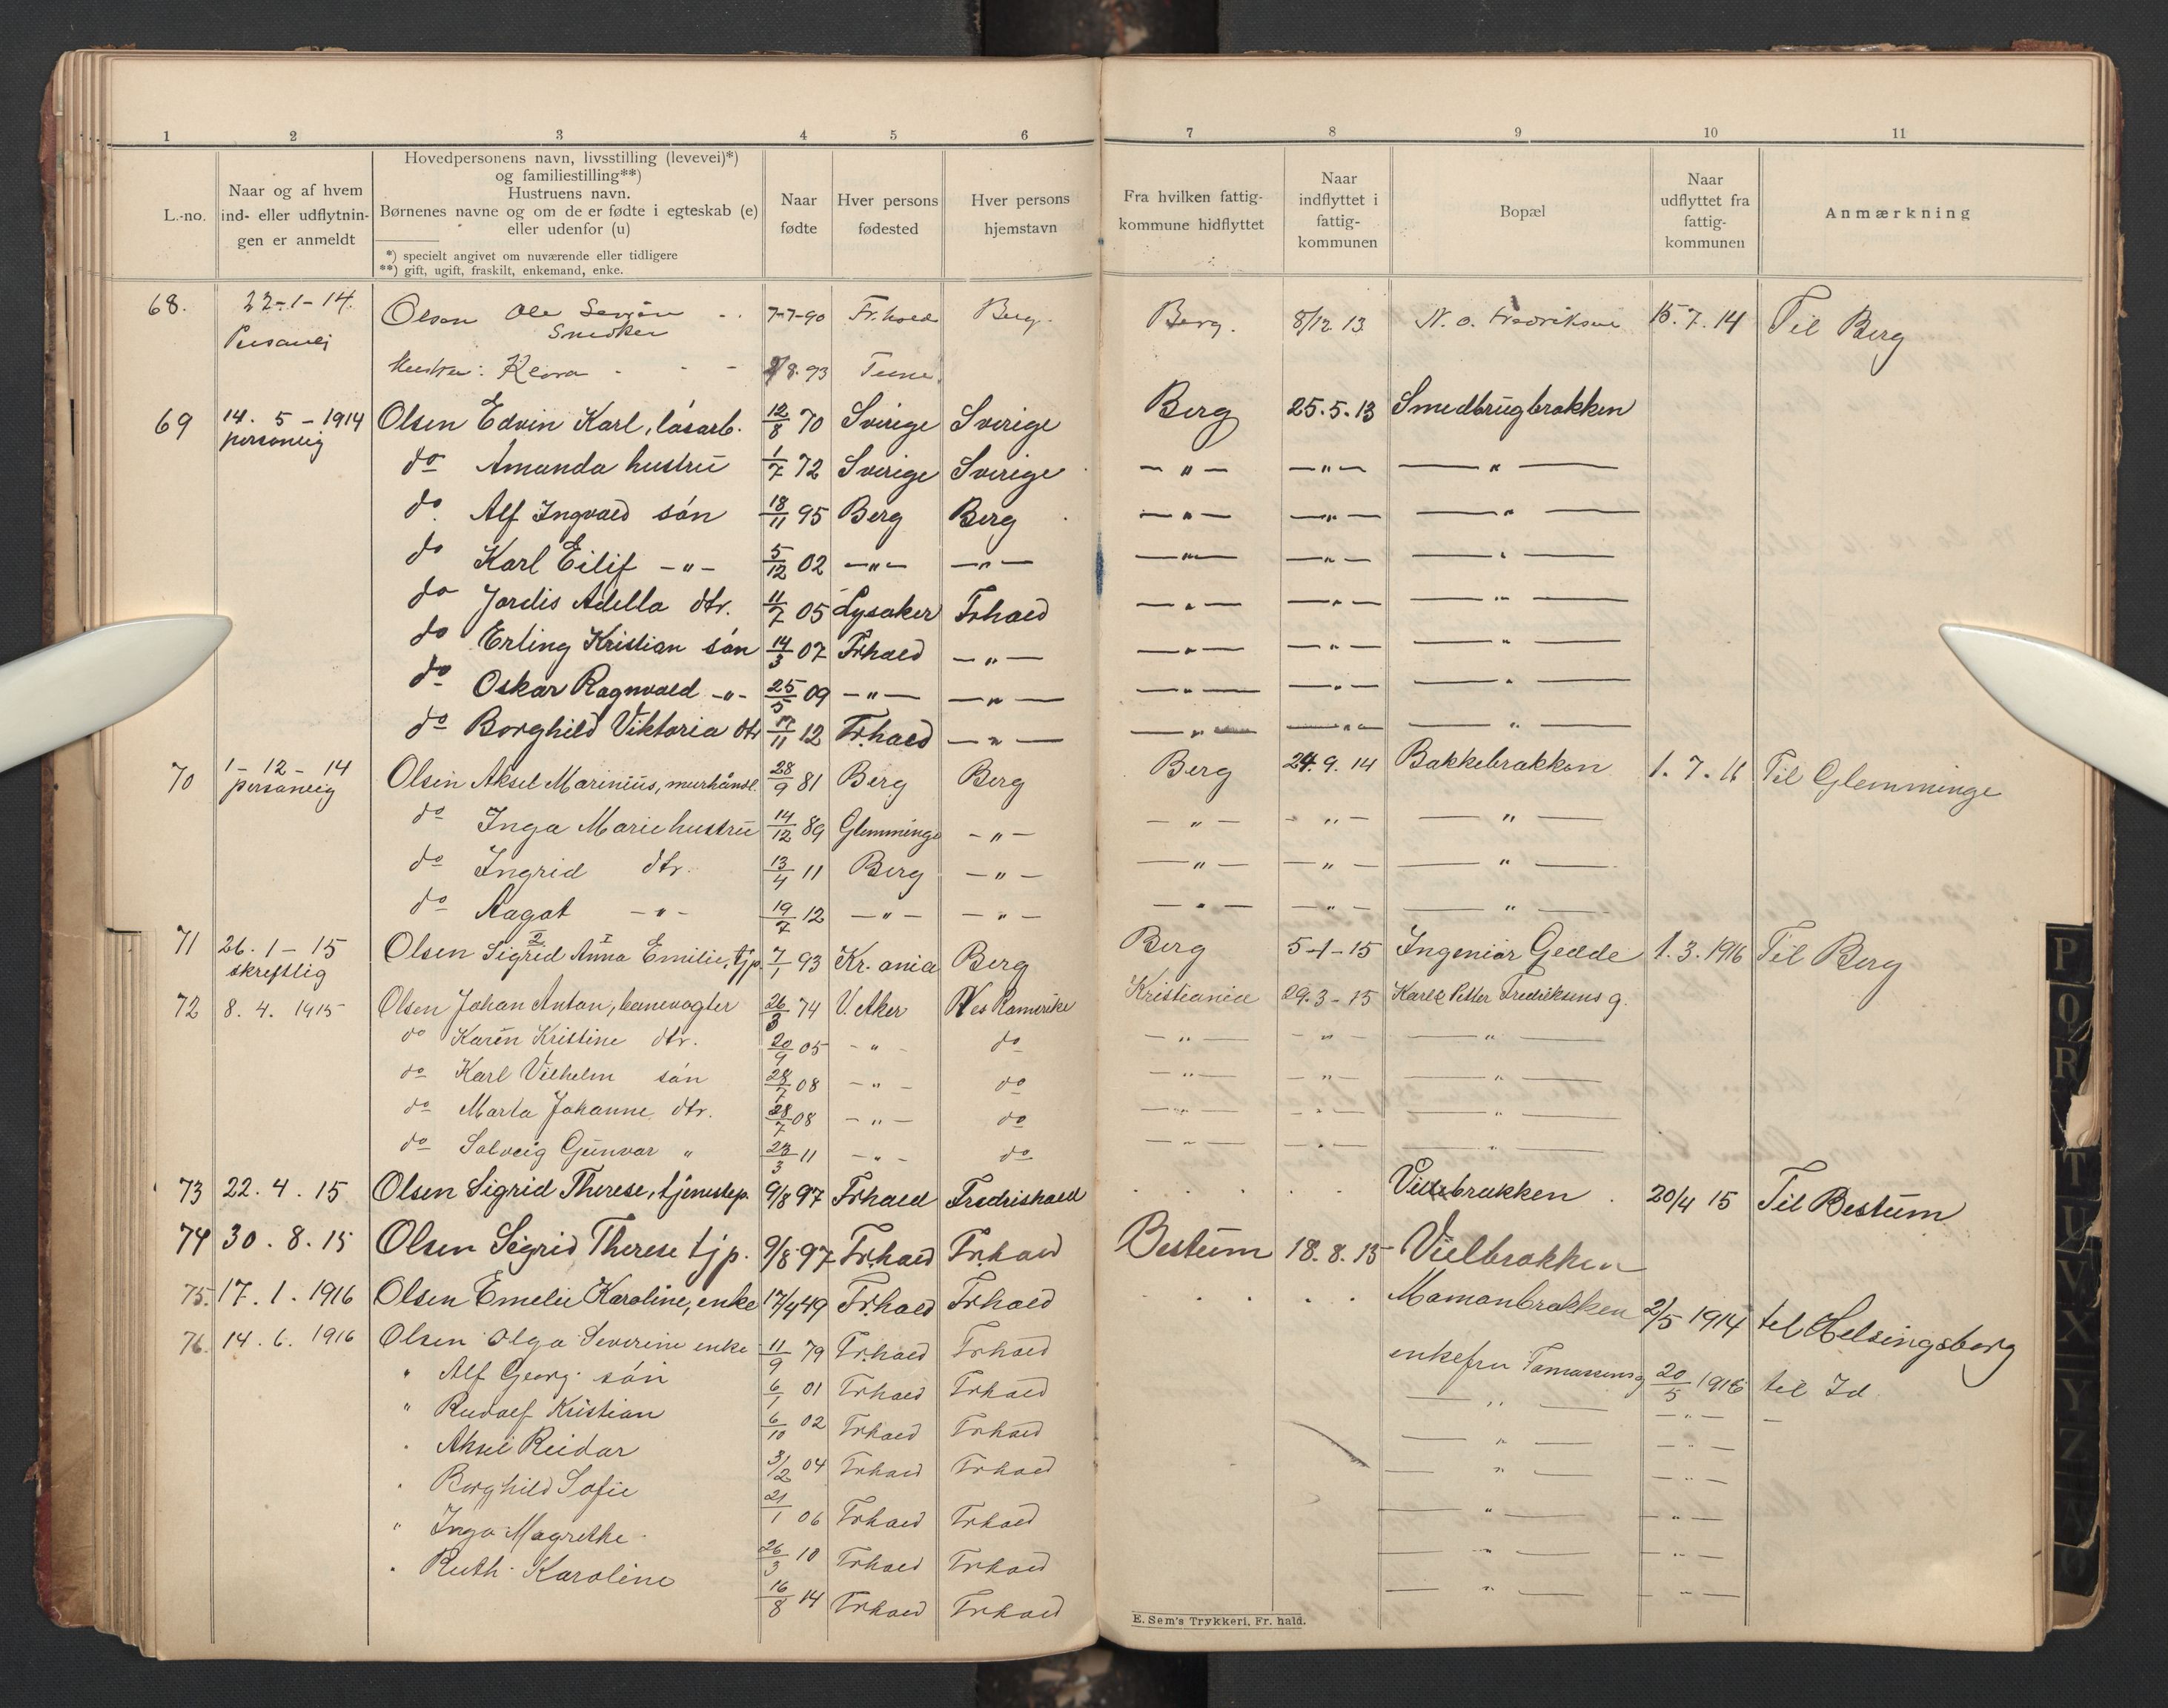 1 2 3 4 5 6 7 8 9 10 11
L.-no.
Naar og af hvem
ind- eller udflytnin-
gen er anmeldt
Hovedpersonens navn, livsstilling (levevei)*)
og familiestilling**)
Hustruens navn.
Børnenes navne og om de er fødte i egteskab (e)
eller udenfor (u)
*) specielt angivet om nuværende eller tidligere
**) gift, ugift, fraskilt, enkemand, enke.
Naar
fødte
Hver persons
fødested
Hver persons
hjemstavn
Fra hvilken fattig-
kommune hidflyttet
Naar
indflyttet i
fattig-
kommunen
Bopæl
Naar
udflyttet fra
fattig-
kommunen
Anmærkning
68. 22-1-14. Olsen Ole 7-7-90 Fr.hald Berg. Berg. 8/12 13 N. O. Fredriksen 15.7.14 Til Berg
Snedker
Hustru: Klara - - - 8.93 Tune.
69 14. 5 - 1914 Olsen Edvin Karl, løsarb. 12/8 70 Sverige Sverige Berg 25.5.13 Smedbrugbrakken
personlig
do Amanda hustru 1/7 72 Sverige Sverige - " - - " - - " -
do Alf Ingvald søn 18/11 95 Berg Berg - " - - " - - " -
do Karl Eilif - " - 5/12 02 - " - - " - - " - - " - - " -
do Jordis Adella dtr. 11/7 05 Lysaker Frhald - " - - " - - " -
do Erling Kristian søn 14/3 07 Frhald - " - - " - - " - - " -
do Oskar Ragnvald - " - 25/5 09 - " - - " - - " - - " - - " -
do Borghild Viktoria dtr 17/11 12 Fr.hald - " - - " - - " - - " -
70 1 - 12 - 14 Olsen Aksel Marinius, murhåndl. 28/9 81 Berg Berg Berg 24.9.14 Bakkebrakken 1.7.16 Til Glemminge
personlig
do Inga Marie hustru 14/12 89 Glemminge - " - - " - - " - - " -
do Ingrid dtr. 13/4 11 Berg - " - - " - - " - - " -
do Aagot - " - 19/7 12 - " - - " - - " - - " - - " -
71 26. 1 - 15 Olsen Sigrid Anna Emilie, tjp. 7/1 93 Kr.ania Berg Berg 5-1-15 Ingeniør Gedde 1.3.1916 Til Berg
2 1
skriftlig
72 8. 4. 1915 Olsen Johan Anton, banevogter 26/3 74 V. Aker Nes Romerike Kristiania 29.3-15 Karl Petter Fredriksens g.
do Karen Kristine dtr. 20/9 05 - " - do - " - - " - - " -
do Karl Vilhelm søn 28/7 08 - " - do - " - - " - - " -
do Marta Johanne dtr. 28/7 08 - " - do - " - - " - - " -
do Solveig Gunvor " 23/3 11 - " - do - " - - " - - " -
73 22. 4. 15 Olsen Sigrid Therese, tjenestep. 9/8 97 Frhald Fredrikshald . . . . . Vielbrakken . 20/4 15 Til Bestum
74 30. 8. 15 Olsen Sigrid Therese tjp. 9/8 97 Fr.hald Fr.hald Bestum 18.8.15 Vielbrakken
75. 17. 1. 1916 Olsen Emelie Karoline, enke 17/4 49 Fr.hald Frhald . . . . . Mamonbrakken 2/5 1914 til Helsingborg
76. 14. 6. 1916 Olsen Olga Severine enke 11/9 79 Fr.hald Frhald enkefru 20/5 1916 til Id.
" Alf Georg søn 6/1 01 Frhald Frhald - " - - " - -
" Rudolf Kristian 6/10 02 Frhald Frhald - " - - " -
" Aksel Reidar 3/2 04 Frhald Frhald - " - - " -
" Borghild Sofie 21/1 06 Frhald Frhald - " - - " -
" Inga Magrethe 26/3 10 Frhald Frhald - " - - " -
" Ruth Karoline 16/8 14 Frhald Frhald - " - - " -
E. Sem's Trykkeri, Fr. hald.
P
Q
R
T
U
V
X
Y
Z